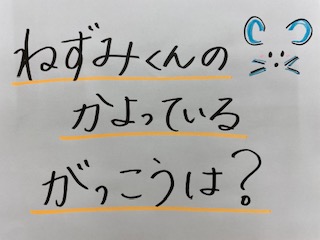 ねずみくんの
かよっている
がっこうは？